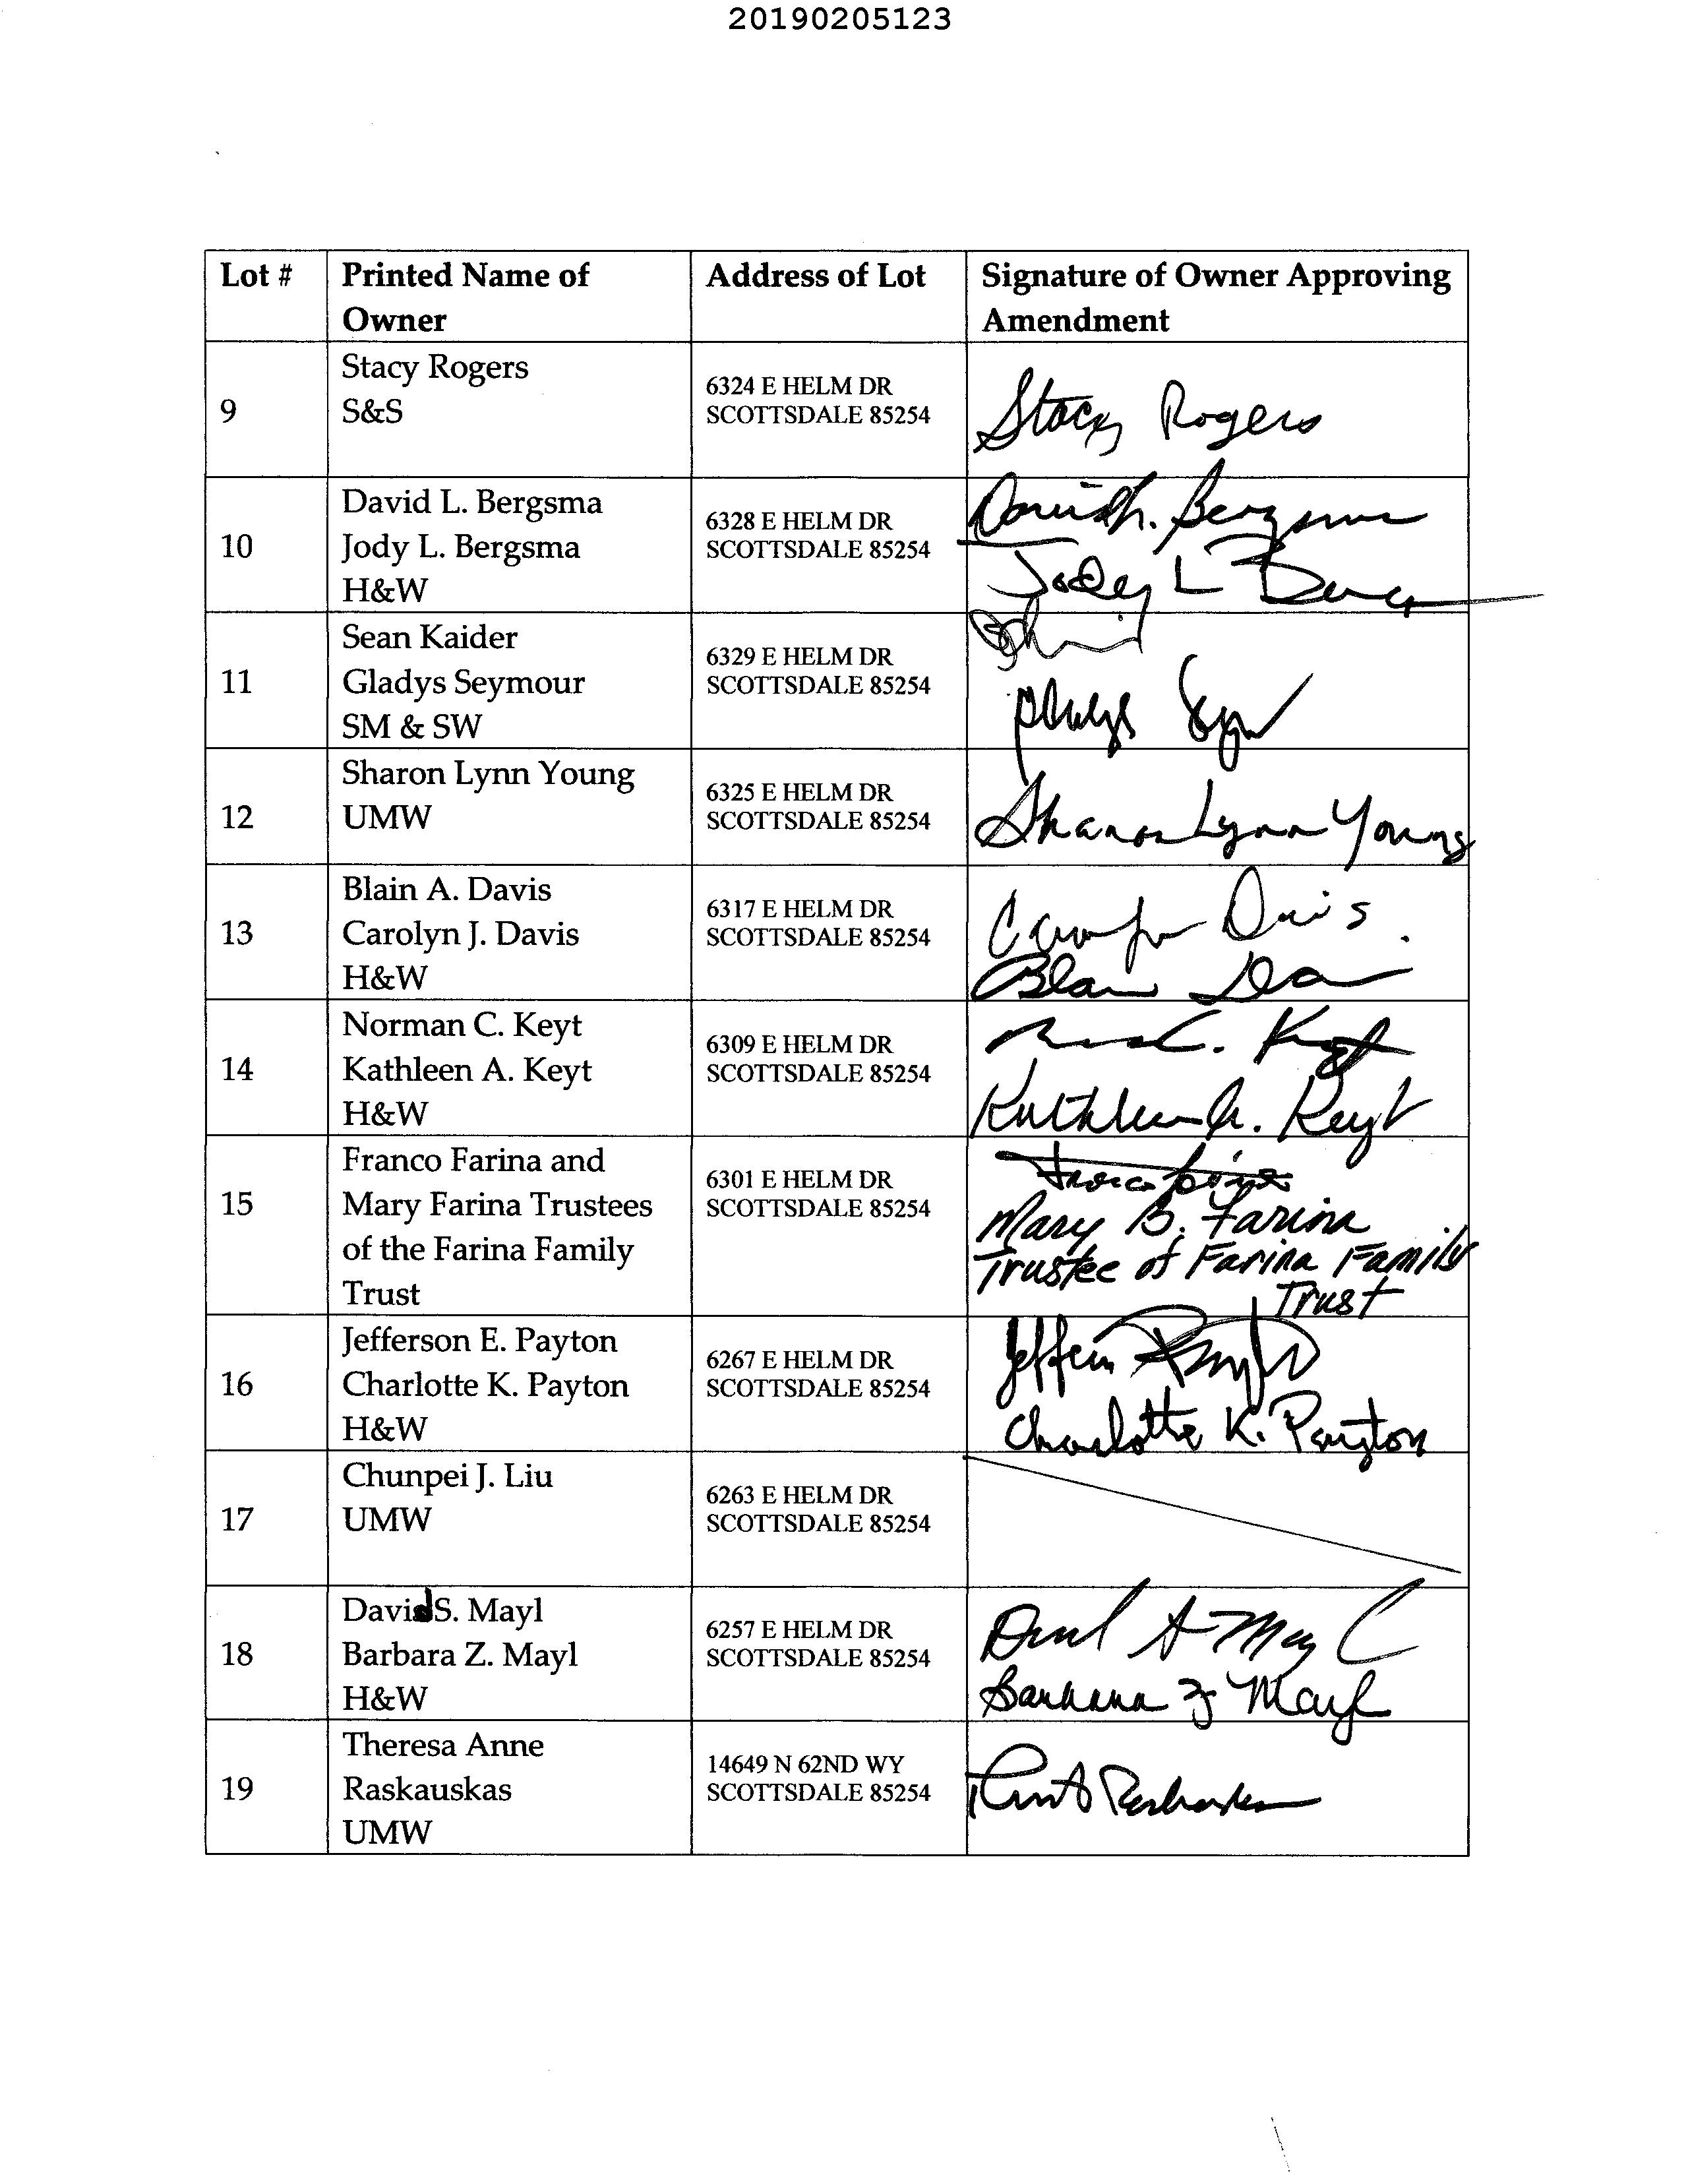 20190205123
Lot # Printed Name of Address of Lot Signature of Owner Approving
Owner Amendment
Stacy Rogers
6324 E HELM DR
9 S&S SCOTTSDALE 85254 Stacy Rogers
David L. Bergsma David L. Bergsma
6328 E HELM DR
10 Jody L. Bergsma SCOTTSDALE 85254
H&W Jody L
Sean Kaider
6329 E HELM DR
11 Gladys Seymour SCOTTSDALE 85254
SM & SW Gladys
Sharon Lynn Young
6325 E HELM DR
12 UMW SCOTTSDALE 85254 Sharon Lynn Young
Blain A. Davis
6317 E HELM DR
13 Carolyn J. Davis SCOTTSDALE 85254 Davis
H&W Blain
Norman C. Keyt C. Keyt
6309 E HELM DR
14 Kathleen A. Keyt SCOTTSDALE 85254
H&W Kathleen A. Keyt
Franco Farina and
6301 E HELM DR
15 Mary Farina Trustees SCOTTSDALE 85254 Mary B. Farina
of the Farina Family Trustee of Farina Family
Trust Trust
Jefferson E. Payton
6267 E HELM DR
16 Charlotte K. Payton SCOTTSDALE 85254
H&W Charlotte K. Payton
Chunpei J. Liu
6263 E HELM DR
17 UMW SCOTTSDALE 85254
David S. Mayl
6257 E HELM DR
18 Barbara Z. Mayl SCOTTSDALE 85254
H&W Barbara Z Mayl
Theresa Anne
14649 N 62ND WY
19 Raskauskas SCOTTSDALE 85254 Raskauskas
UMW